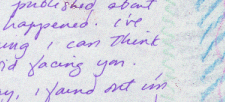 published about
happened. I've
ung I can think
id facing you.
y, I found out I'm